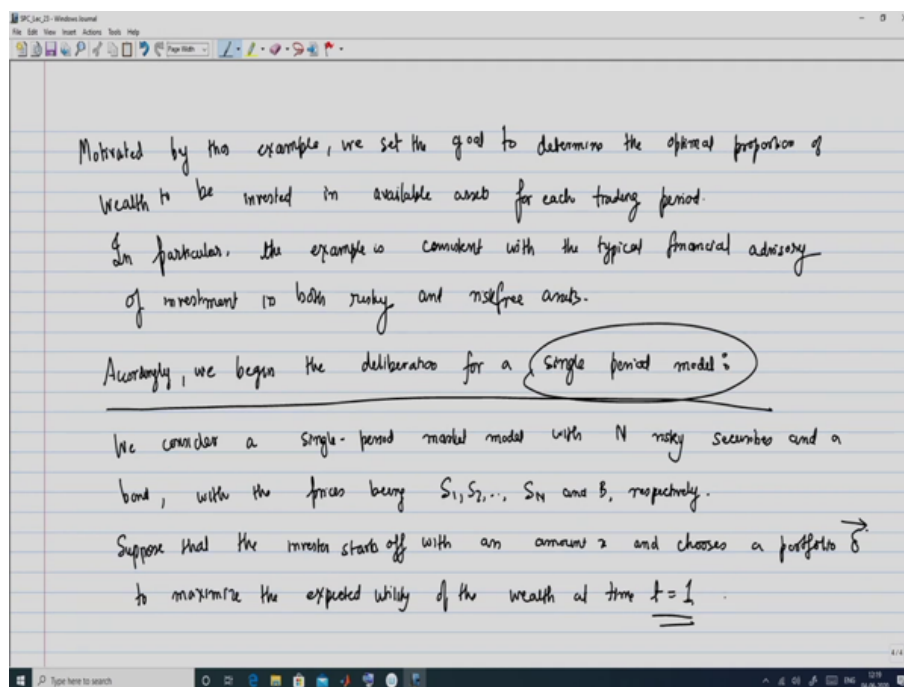 SPC_Lec_23 - Windows Journal
File Edit View Insert Actions Tools Help
Page Width
Motivated by this example, we set the goal to determine the optimal proportion of
wealth to be invested in available assets for each trading period.
In particular, the example is consistent with the typical financial advisory
of investment in both risky and riskfree assets.
Accordingly, we begin the deliberation for a single period model:
We consider a single-period market model with N risky securities and a
bond, with the prices being S₁, S₂, .., S_N and B, respectively.
Suppose that the investor starts off with an amount x and chooses a portfolio δ⃗
to maximize the expected utility of the wealth at time t = 1.
4/4
Type here to search
ENG
12:19
04-06-2020